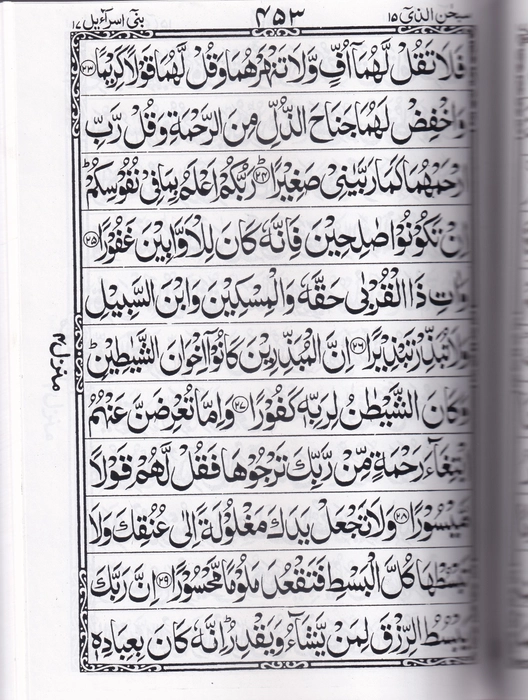 سبحن الذی ١٥
٤٥٣
بنی اسرآءیل ١٧
فَلَا تَقُلْ لَّهُمَآ اُفٍّ وَّلَا تَنْهَرْهُمَا وَقُلْ لَّهُمَا قَوْلًا كَرِیْمًا ﴿٢٣﴾
وَاخْفِضْ لَهُمَا جَنَاحَ الذُّلِّ مِنَ الرَّحْمَةِ وَقُلْ رَّبِّ
ارْحَمْهُمَا كَمَا رَبَّیٰنِیْ صَغِیْرًا ﴿٢٤﴾ رَبُّكُمْ اَعْلَمُ بِمَا فِیْ نُفُوْسِكُمْ ؕ
اِنْ تَكُوْنُوْا صٰلِحِیْنَ فَاِنَّهٗ كَانَ لِلْاَوَّابِیْنَ غَفُوْرًا ﴿٢٥﴾
وَاٰتِ ذَا الْقُرْبٰی حَقَّهٗ وَالْمِسْكِیْنَ وَابْنَ السَّبِیْلِ
وَلَا تُبَذِّرْ تَبْذِیْرًا ﴿٢٦﴾ اِنَّ الْمُبَذِّرِیْنَ كَانُوْٓا اِخْوَانَ الشَّیٰطِیْنِ ؕ
وَكَانَ الشَّیْطٰنُ لِرَبِّهٖ كَفُوْرًا ﴿٢٧﴾ وَاِمَّا تُعْرِضَنَّ عَنْهُمُ
ابْتِغَآءَ رَحْمَةٍ مِّنْ رَّبِّكَ تَرْجُوْهَا فَقُلْ لَّهُمْ قَوْلًا
مَّیْسُوْرًا ﴿٢٨﴾ وَلَا تَجْعَلْ یَدَكَ مَغْلُوْلَةً اِلٰی عُنُقِكَ وَلَا
تَبْسُطْهَا كُلَّ الْبَسْطِ فَتَقْعُدَ مَلُوْمًا مَّحْسُوْرًا ﴿٢٩﴾ اِنَّ رَبَّكَ
یَبْسُطُ الرِّزْقَ لِمَنْ یَّشَآءُ وَیَقْدِرُ ؕ اِنَّهٗ كَانَ بِعِبَادِهٖ
منزل ٤